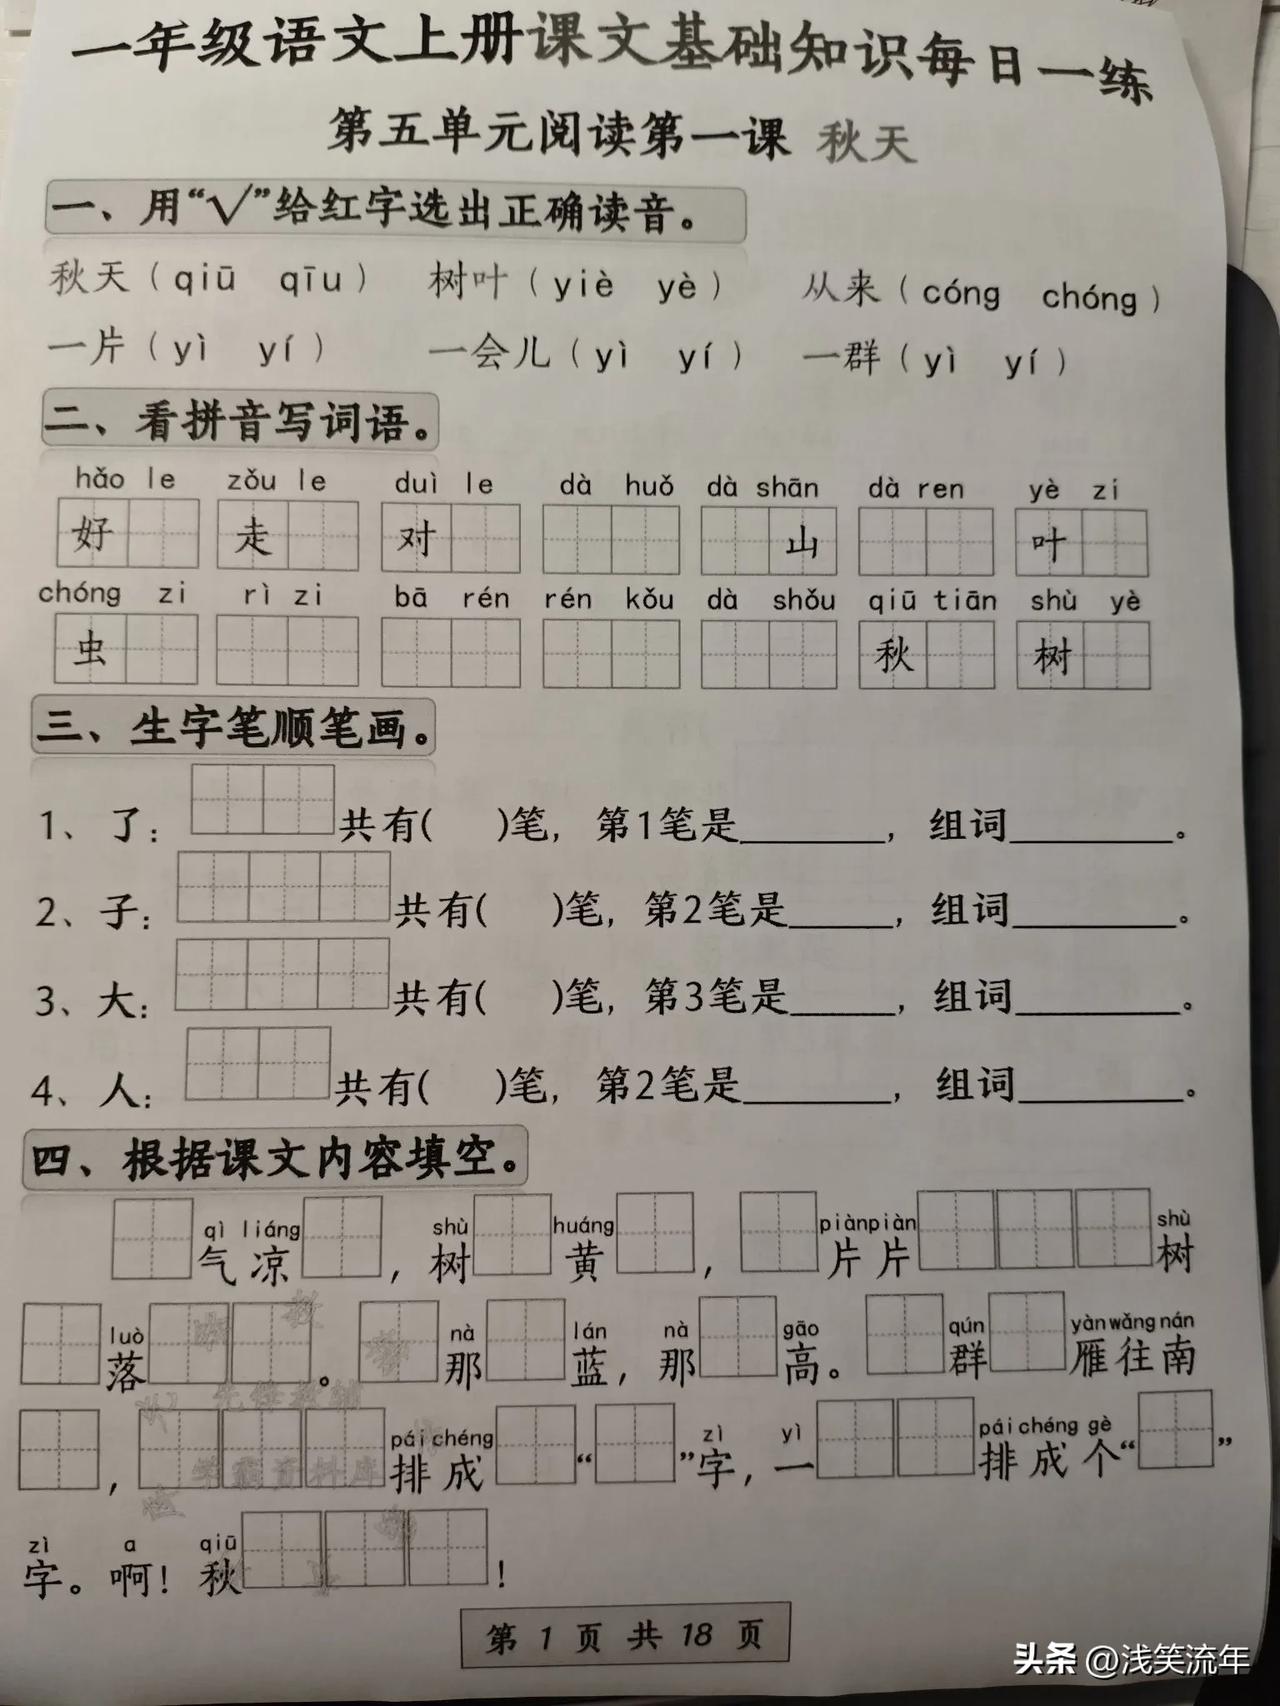 一年级语文上册课文基础知识每日一练
第五单元阅读第一课 秋天
一、用“√”给红字选出正确读音。
秋天（qiū qīu） 树叶（yiè yè） 从来（cóng chóng）
一片（yì yí） 一会儿（yì yí） 一群（yì yí）
二、看拼音写词语。
hǎo le zǒu le duì le dà huǒ dà shān dà ren yè zi
好 走 对 山 叶
chóng zi rì zi bā rén rén kǒu dà shǒu qiū tiān shù yè
虫 秋 树
三、生字笔顺笔画。
1、了： 共有( )笔，第1笔是______，组词______。
2、子： 共有( )笔，第2笔是______，组词______。
3、大： 共有( )笔，第3笔是______，组词______。
4、人： 共有( )笔，第2笔是______，组词______。
四、根据课文内容填空。
qì liáng shù huáng piànpiàn shù
气凉 ，树 黄 ， 片片 树
luò nà lán nà gāo qún yàn wǎng nán
落 。 那 蓝，那 高。 群 雁往南
pái chéng zì yì pái chéng gè
， 排成 “ ”字，一 排成个“ ”
zì a qiū
字。啊！秋 ！
第 1 页 共 18 页
头条 @浅笑流年